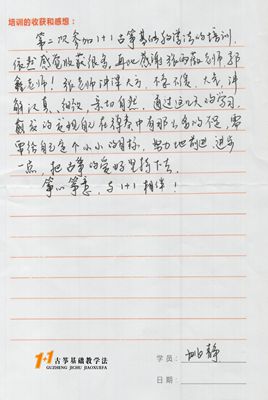 培训的收获和感想：
第二次参加1+1古筝基础教学法的培训，
依然感觉收获很多，再次感谢张西茜老师、郭
鑫老师！张老师讲课大方、不急不缓，大气，讲
解认真、细致、亲切自然，通过这几天的学习，
更多的发现自己在弹奏中有那么多的不足，需
要给自己定个小小的目标，努力地前进，进步
一点，把古筝的爱好坚持下去。
筝心筝意，与1+1相伴！
1+1古筝基础教学法
GUZHENG JICHU JIAOXUEFA
学员：姚静
日期：